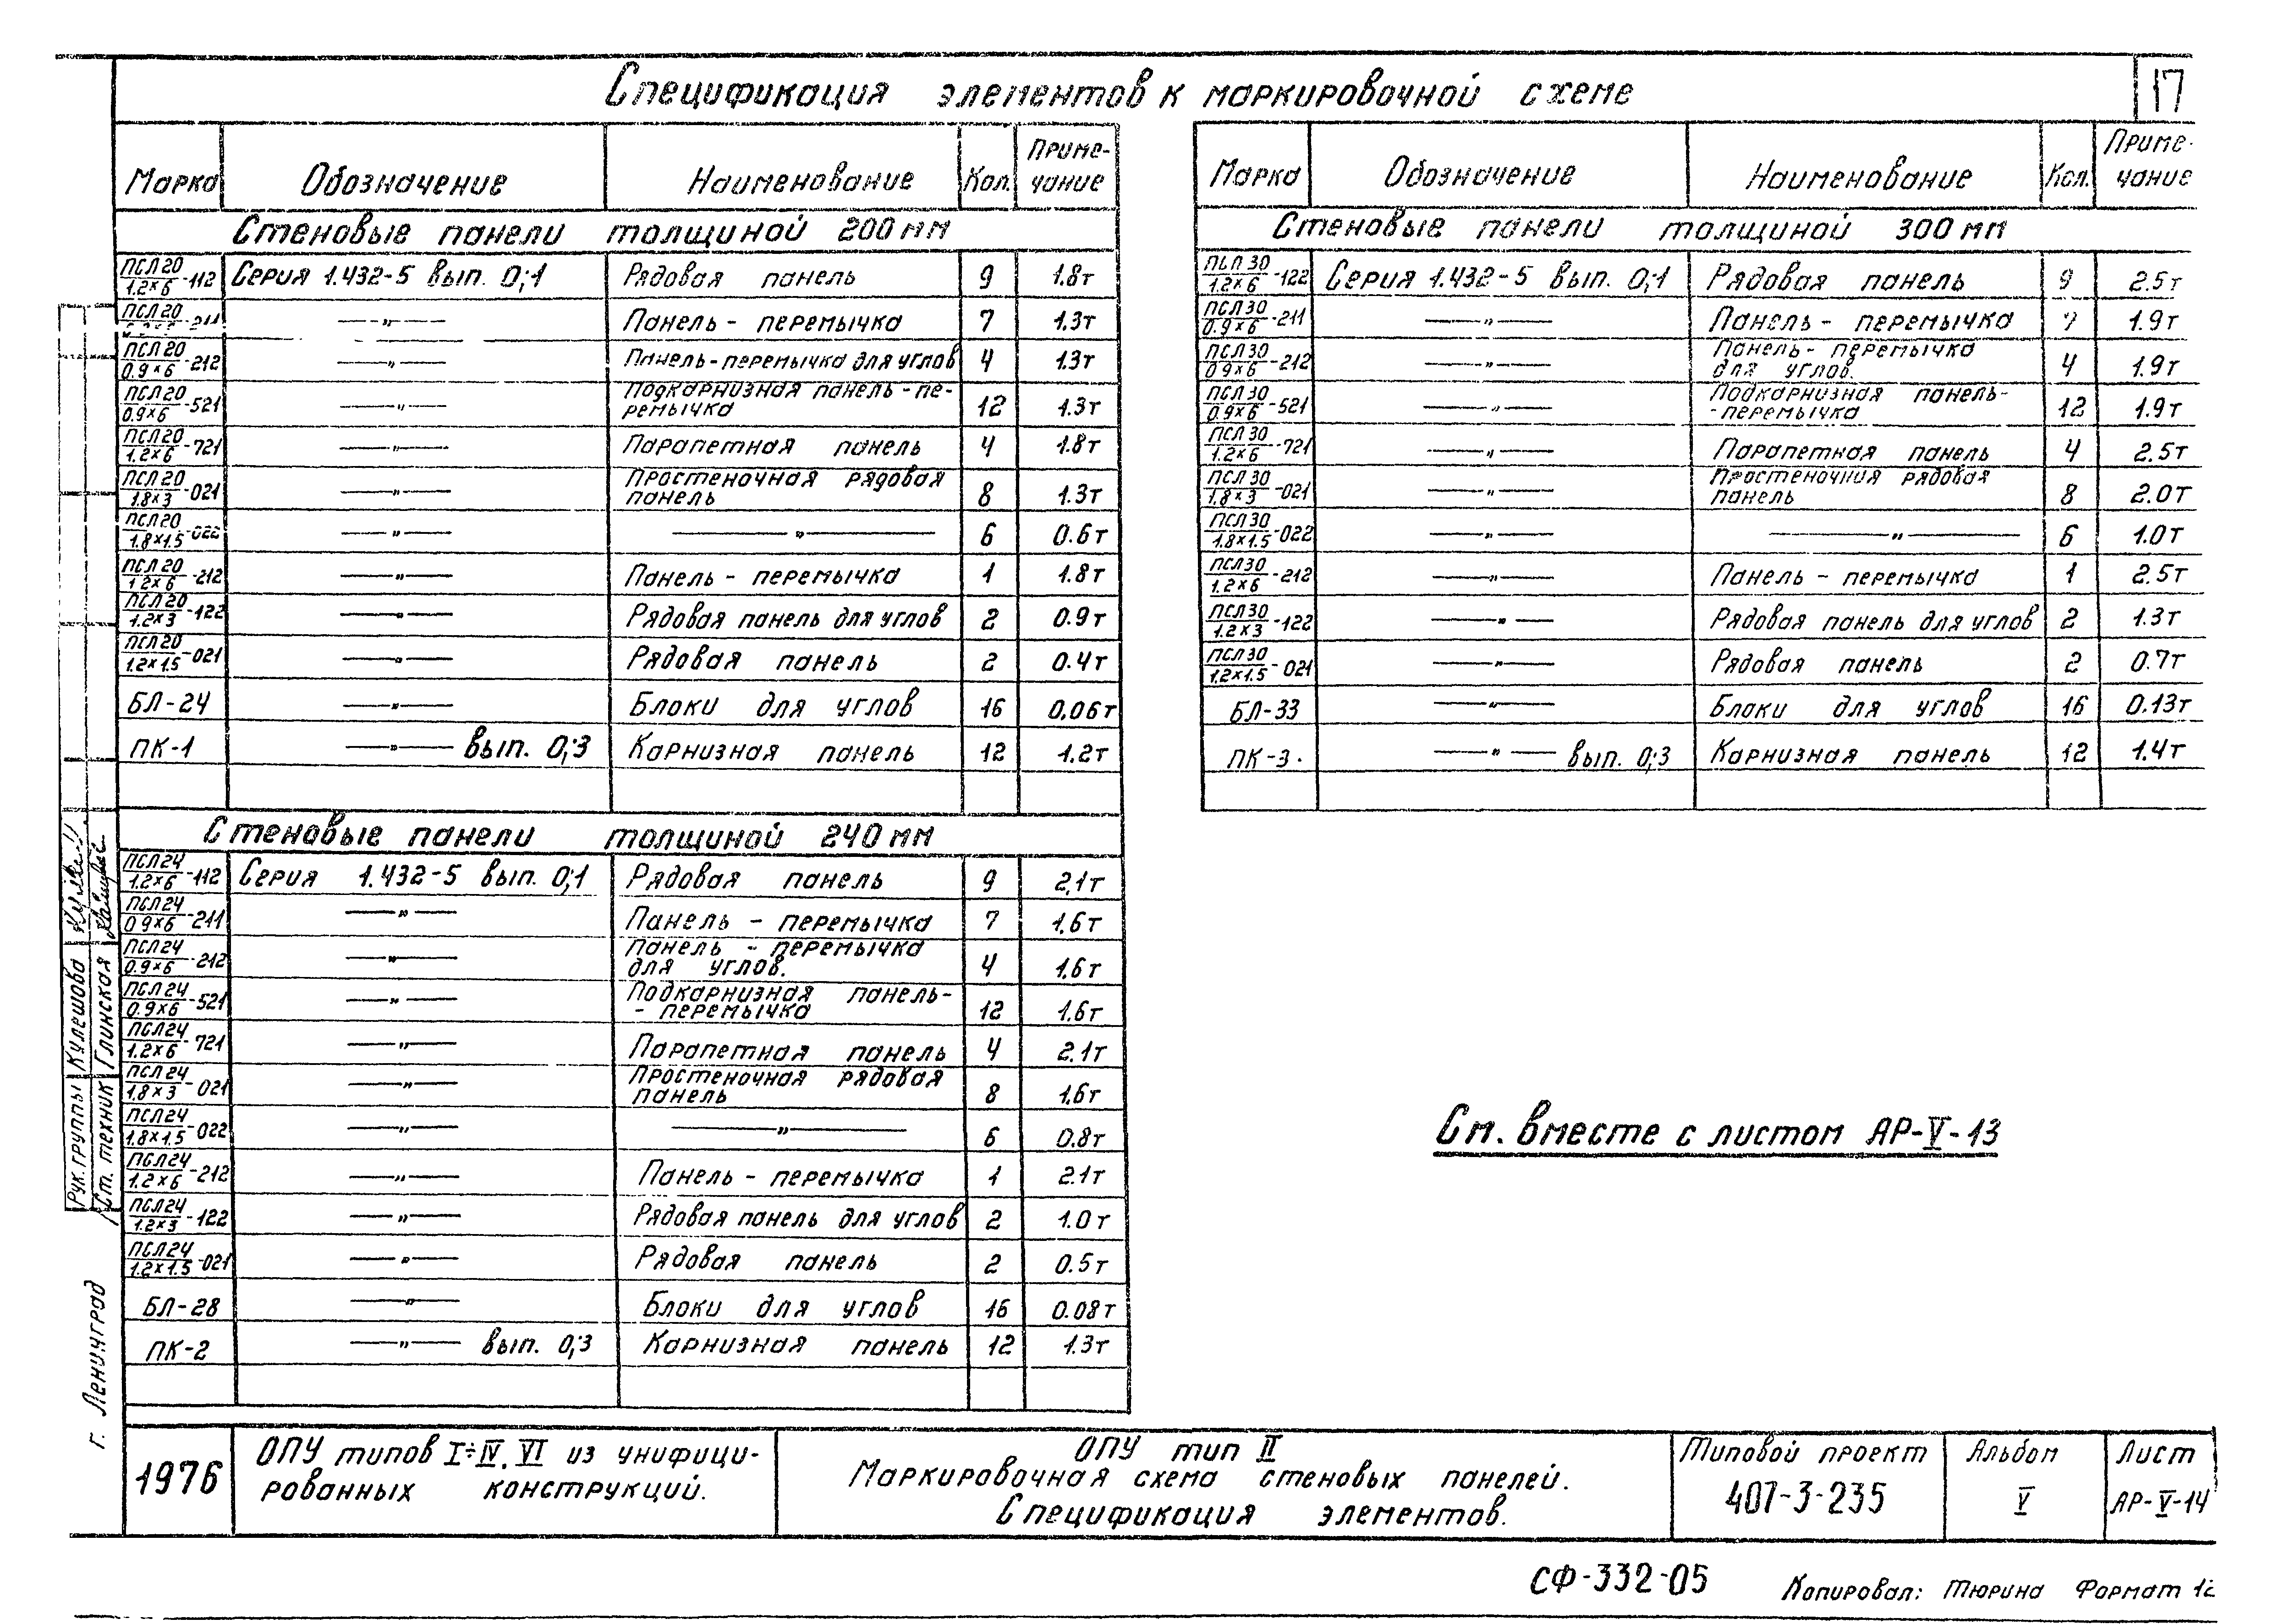 Спецификация элементов к маркировочной схеме
17
Марка Обозначение Наименование Кол. Приме-чание
Стеновые панели толщиной 200 мм
ПСЛ20/1.2×6-112 Серия 1.432-5 вып. 0;1 Рядовая панель 9 1.8т
ПСЛ20 -211 —„— Панель - перемычка 7 1.3т
ПСЛ20/0.9×6-212 —„— Панель-перемычка для углов 4 1.3т
ПСЛ20/0.9×6-521 —„— Подкарнизная панель-пе-ремычка 12 1.3т
ПСЛ20/1.2×6-721 —„— Парапетная панель 4 1.8т
ПСЛ20/1.8×3-021 —„— Простеночная рядовая панель 8 1.3т
ПСЛ20/1.8×1.5-022 —„— —„— 6 0.6т
ПСЛ20/1.2×6-212 —„— Панель - перемычка 1 1.8т
ПСЛ20/1.2×3-122 —„— Рядовая панель для углов 2 0.9т
ПСЛ20/1.2×1.5-021 —„— Рядовая панель 2 0.4т
БЛ-24 —„— Блоки для углов 16 0.06т
ПК-1 —„— вып. 0;3 Карнизная панель 12 1.2т
Стеновые панели толщиной 240 мм
ПСЛ24/1.2×6-112 Серия 1.432-5 вып. 0;1 Рядовая панель 9 2,1т
ПСЛ24/0.9×6-211 —„— Панель - перемычка 7 1.6т
ПСЛ24/0.9×6-212 —„— Панель - перемычка для углов. 4 1.6т
ПСЛ24/0.9×6-521 —„— Подкарнизная панель- - перемычка 12 1.6т
ПСЛ24/1.2×6-721 —„— Парапетная панель 4 2.1т
ПСЛ24/1.8×3-021 —„— Простеночная рядовая панель 8 1.6т
ПСЛ24/1.8×1.5-022 —„— —„— 6 0.8т
ПСЛ24/1.2×6-212 —„— Панель - перемычка 1 2.1т
ПСЛ24/1.2×3-122 —„— Рядовая панель для углов 2 1.0т
ПСЛ24/1.2×1.5-021 —„— Рядовая панель 2 0.5т
БЛ-28 —„— Блоки для углов 16 0.08т
ПК-2 —„— вып. 0;3 Карнизная панель 12 1.3т
Марка Обозначение Наименование Кол. Приме-чание
Стеновые панели толщиной 300 мм
ПСЛ30/1.2×6-122 Серия 1.432-5 вып. 0;1 Рядовая панель 9 2.5т
ПСЛ30/0.9×6-211 —„— Панель - перемычка 7 1.9т
ПСЛ30/0.9×6-212 —„— Панель - перемычка для углов. 4 1.9т
ПСЛ30/0.9×6-521 —„— Подкарнизная панель- -перемычка 12 1.9т
ПСЛ30/1.2×6-721 —„— Парапетная панель 4 2.5т
ПСЛ30/1.8×3-021 —„— Простеночная рядовая панель 8 2.0т
ПСЛ30/1.8×1.5-022 —„— —„— 6 1.0т
ПСЛ30/1.2×6-212 —„— Панель - перемычка 1 2.5т
ПСЛ30/1.2×3-122 —„— Рядовая панель для углов 2 1.3т
ПСЛ30/1.2×1.5-021 —„— Рядовая панель 2 0.7т
БЛ-33 —„— Блоки для углов 16 0.13т
ПК-3. —„— вып. 0;3 Карнизная панель 12 1.4т
См. вместе с листом АР-V-13
Рук. группы Кулешова
Ст. техник Глинская
г. Ленинград
1976
ОПУ типов I÷IV, VI из унифици-
рованных конструкций.
ОПУ тип II
Маркировочная схема стеновых панелей.
Спецификация элементов.
Типовой проект
407-3-235
Альбом
V
Лист
АР-V-14
СФ-332-05
Копировал: Тюрина Формат 12